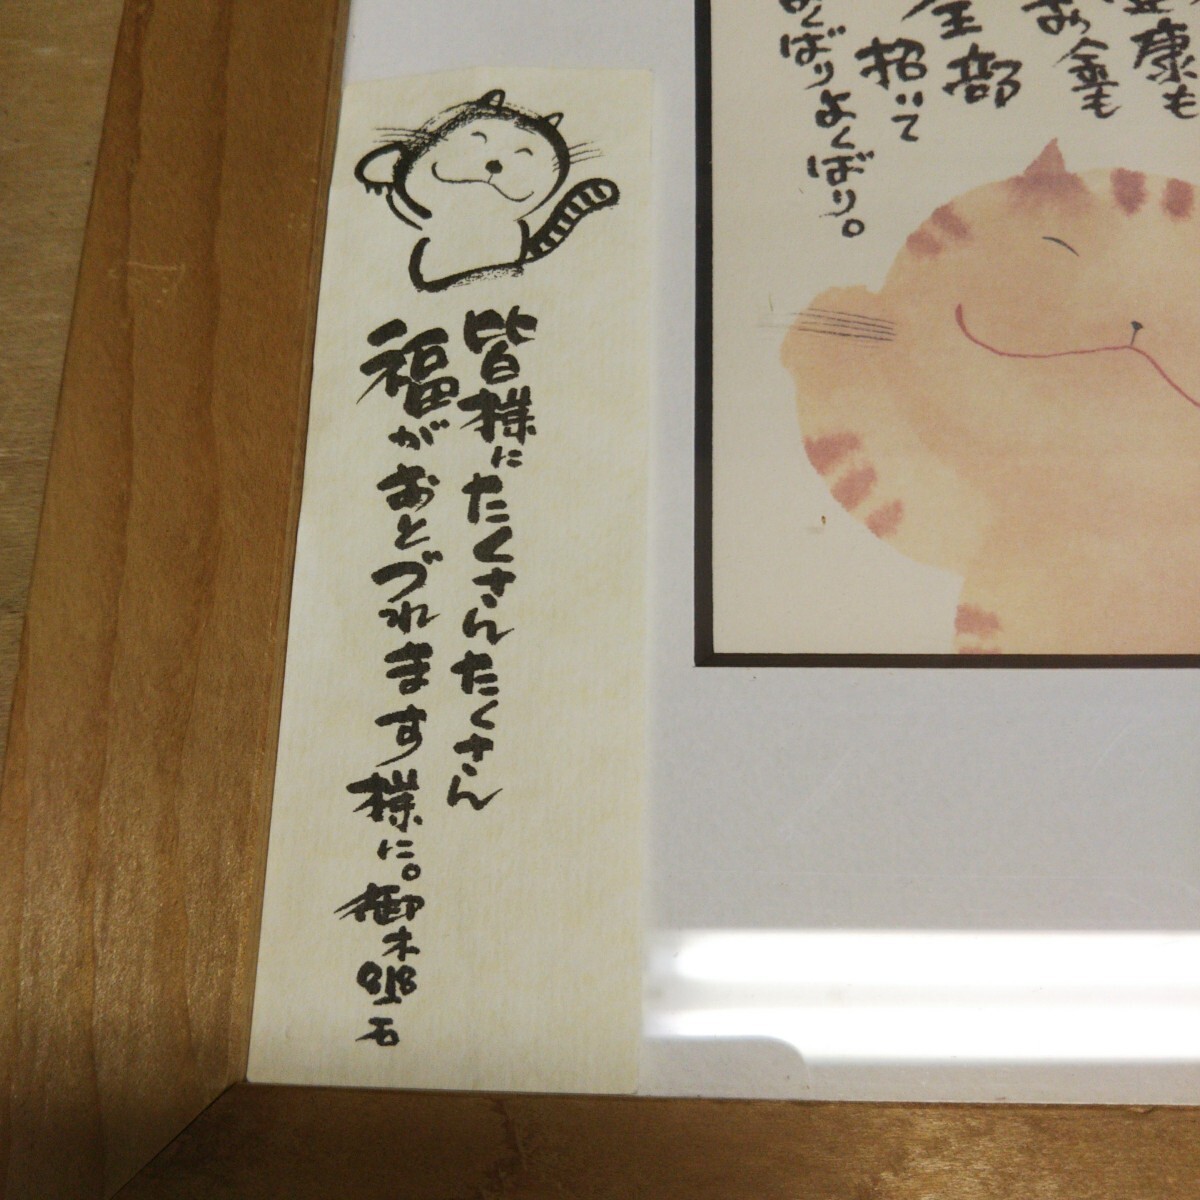 健康も
お金も
全部
招いて
よくばりよくばり。
皆様に たくさんたくさん
福がおとづれます様に。御木幽石